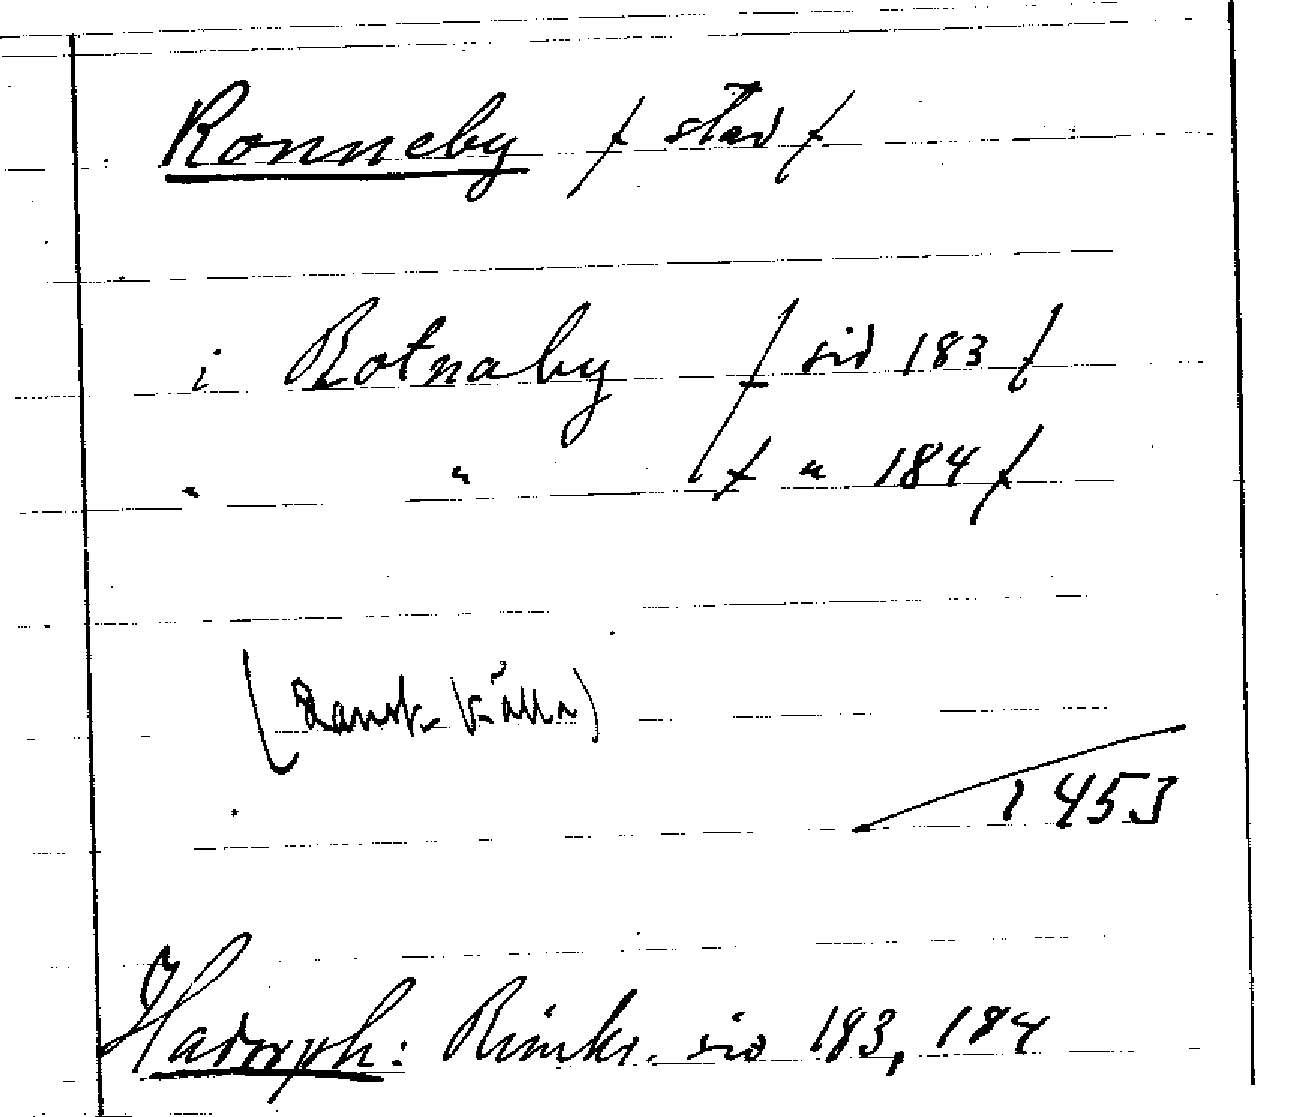 Ronneby / stad /
i Rotnaby / sid 183 /
" " / " 184 /
(Dansk källa)
1453
Hadorph: Rimkr. sid 183, 184